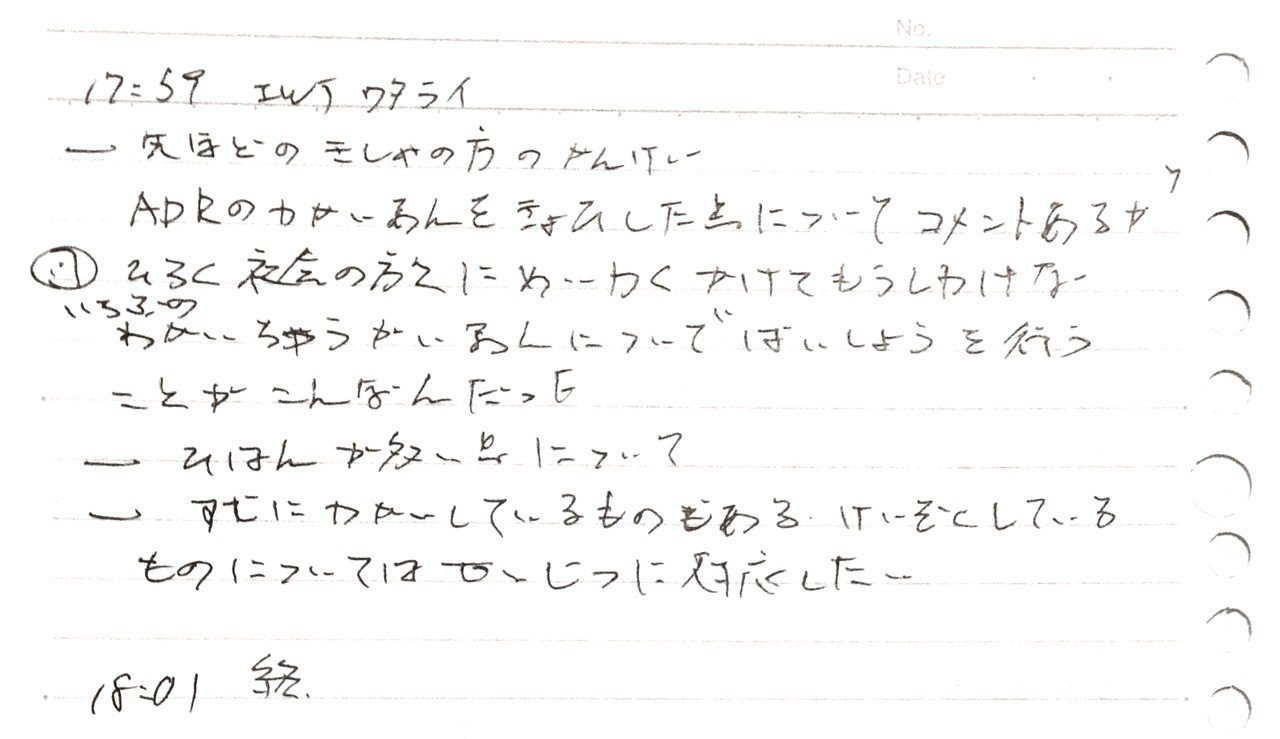 No.
Date
17:59 IWJ ワタライ
ー 先ほどのきしゃの方のかんけい
ADRのわかいあんをきょひした点についてコメントあるか
ひろく社会の方々にめいわくかけてもうしわけない
いちぶの
わかいちゅうかいあんについてばいしょうを行う
ことがこんなんだった
ー ひはんが多い点について
ー すでにわかいしているものもある けいぞくしている
ものについてはせいじつに対応したい
18:01 終.